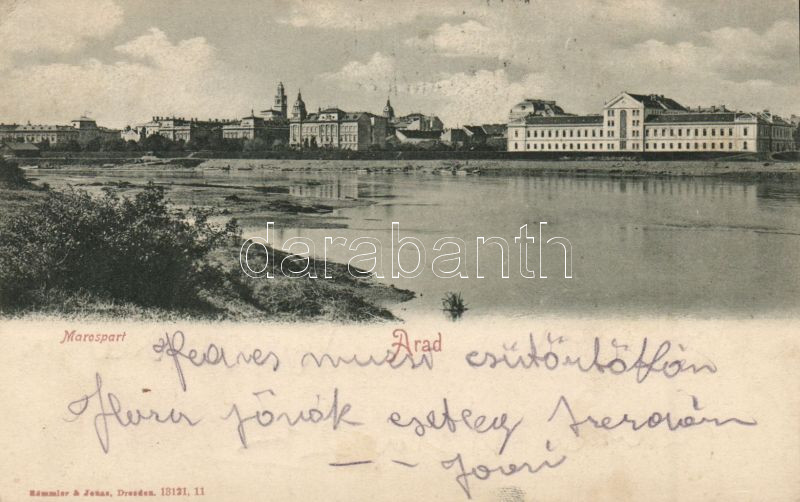 darabanth
Marospart
Arad
Kedves muszi csütörtökön
Flóra jönák esetleg szerdán
— — Jovri
Römmler & Jonas, Dresden. 13121, 11